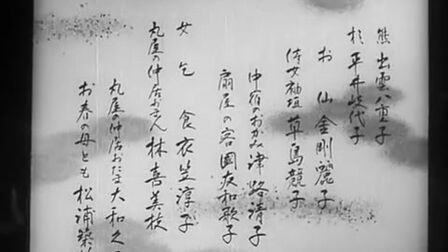 熊 出雲八重子
杉 平井岐代子
お仙 金剛麗子
侍女袖垣 草島競子
中宿のおかみ 津路清子
扇屋の客 國友和歌子
女乞食 衣笠淳子
丸屋の仲居おさん 林喜美枝
丸屋の仲居 大和久
お春の母とも 松浦築